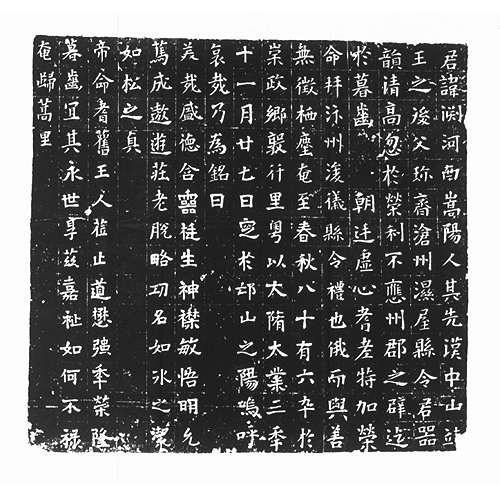 君諱渊河南嵩陽人其先漢中山靖
王之後父珎齊滄州濕屋縣令君器
韻清高忽於榮利不應州郡之辟迄
於暮齒 朝廷虛心耆老特加榮
命拜汴州浚儀縣令禮也俄而與善
無徵栖塵奄至春秋八十有六卒於
崇政鄉毅行里粤以大隋大業三年
十一月廿七日窆於邙山之陽嗚呼
哀哉乃為銘曰
美哉盛德含靈挺生神襟敏悟明允
篤成遨遊莊老脫略功名如冰之潔
如松之貞
帝命耆舊王人莅止道懋强年榮隆
暮齒宜其永世享兹嘉祉如何不祿
奄歸蒿里